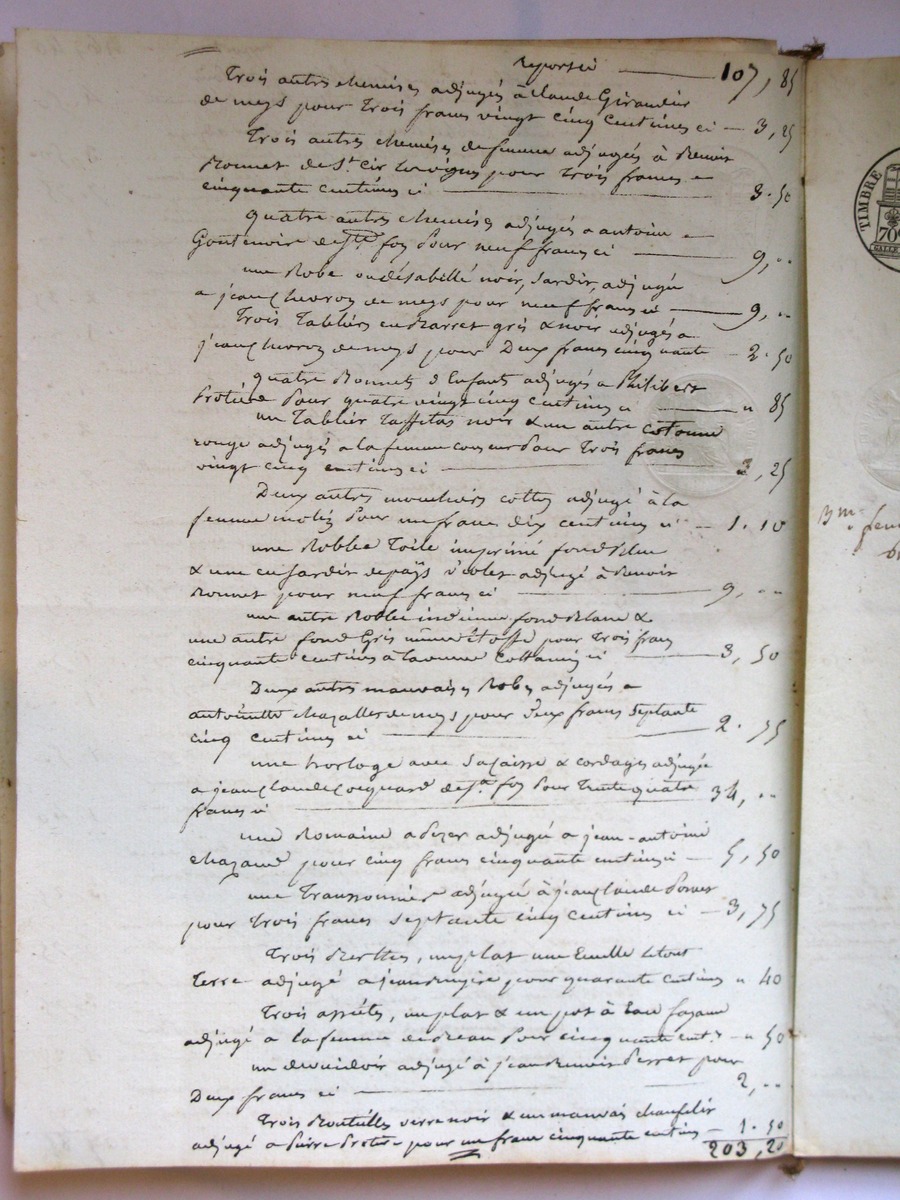 reporté 107, 85
Trois autres chemises adjugés à Claude Giraudier
de meys pour trois francs vingt cinq centimes ci 3, 25
Trois autres chemises de femme adjugés à Benoit
Bonnet de St. Cir pour trois francs
cinquante centimes ci 3. 50
quatre autres chemises adjugés a antoine
Goutenoire de Ste foy pour neuf francs ci 9, ..
une Robe ou désabillé noir, jardin, adjugé
a jean chevron de meys pour neuf francs ci 9, ..
Trois Tabliers en Barret gris & noir adjugés a
jean chevron de meys pour Deux francs cinquante 2. 50
quatre Bonnets d'Enfants adjugés a Philibert
Protière pour quatre vingt cinq centimes ci " 85
un Tablier Taffetas noir & un autre cotonne
rouge adjugés a la femme pour Trois francs
vingt cinq centimes ci 3, 25
Deux autres mouchoirs cottes adjugé à la
femme pour un franc dix centimes ci 1. 10
une Roblee Toile imprimé fond Bleu
& une en jardin de pays violet adjugé à Benoit
Bonnet pour neuf francs ci 9, ..
une autre Roblee indienne fond Blanc &
une autre fond Gris même étoffe pour trois francs
cinquante centimes à ci 3, 50
Deux autres mauvaises Robes adjugés a
antoinette chazalles de meys pour Deux francs Septante
cinq centimes ci 2. 75
une horloge avec sa caisse & cordages adjugée
a jean Claude Coquard de Ste foy pour Trente quatre
francs ci 34, ..
une Romaine a Pezer adjugé a jean-antoine
chazaud pour cinq francs cinquante centimes ci 5, 50
une adjugée à jean Claude
pour Trois francs Septante cinq centimes ci 3, 75
Trois Berthes, un plat une Ecuelle le tout
Terre adjugé a jean pour quarante centimes " 40
Trois assiétes, un plat & un pot à Eau fayance
adjugé a la femme pour cinquante cent.s " 50
un devuidoir adjugé à jean Benoit Perret pour
Deux francs ci 2, ..
Trois Bouteilles verre noir & un mauvais chaufelir
adjugé a Pierre Protière pour un franc cinquante centimes 1. 50
203, 20
TIMBRE
70